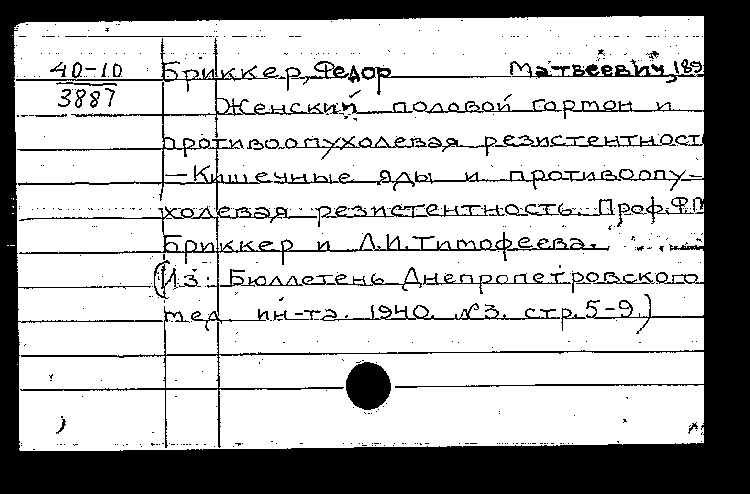 40-10 Бриккер, Федор Матвеевич, 189
3887
Женский половой гормон и
противоопухолевая резистентност
— Кишечные яды и противоопу-
холевая резистентность. Проф. Ф.М
Бриккер и Л.И. Тимофеева.
(Из: Бюллетень Днепропетровского
мед. ин-та. 1940. №3. стр. 5-9.)